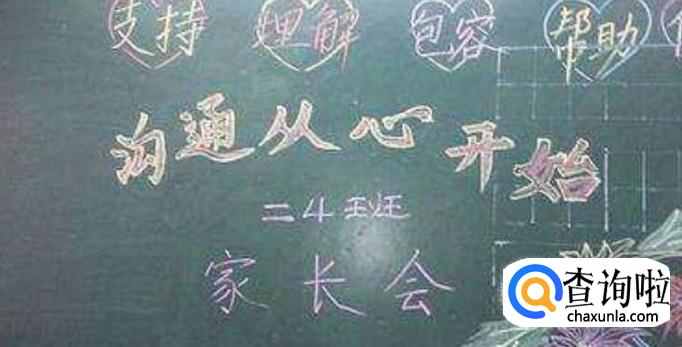 支持 理解 包容 帮助
沟通从心开始
二4班
家长会
查询啦
chaxunla.com